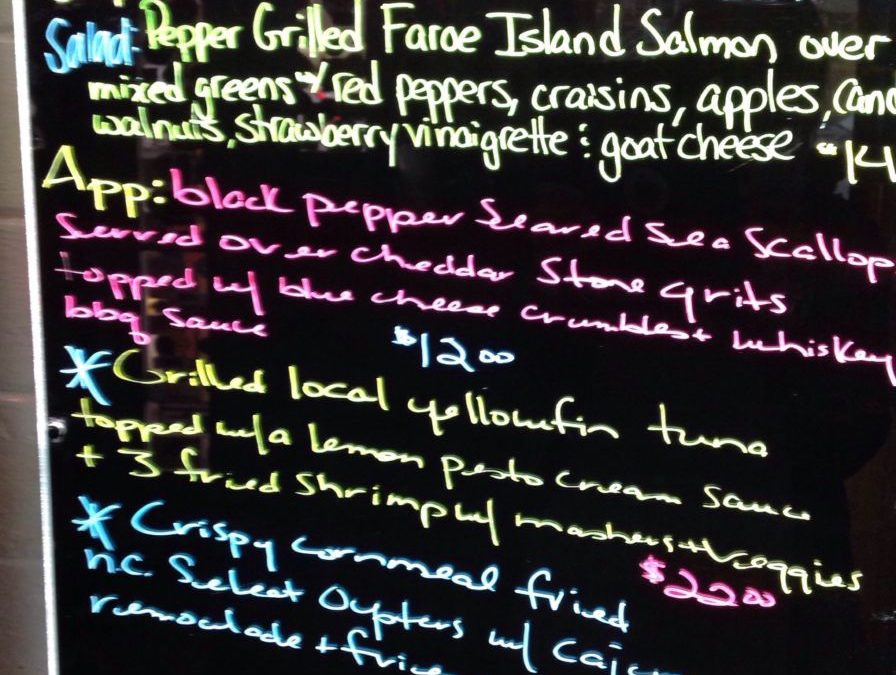 Salad: Pepper Grilled Faroe Island Salmon over
mixed greens w/ red peppers, craisins, apples,
walnuts, strawberry vinaigrette & goat cheese $14
App: black pepper Seared Sea Scallop
Served over cheddar Stone grits
topped w/ blue cheese crumbles + whiskey
bbq sauce $12.00
* Grilled local yellowfin tuna
topped w/ a lemon pesto cream sauce
+ 3 fried shrimp w/ mashers + veggies
$22.00
* Crispy cornmeal fried
n.c. Select Oysters w/
remoulade +